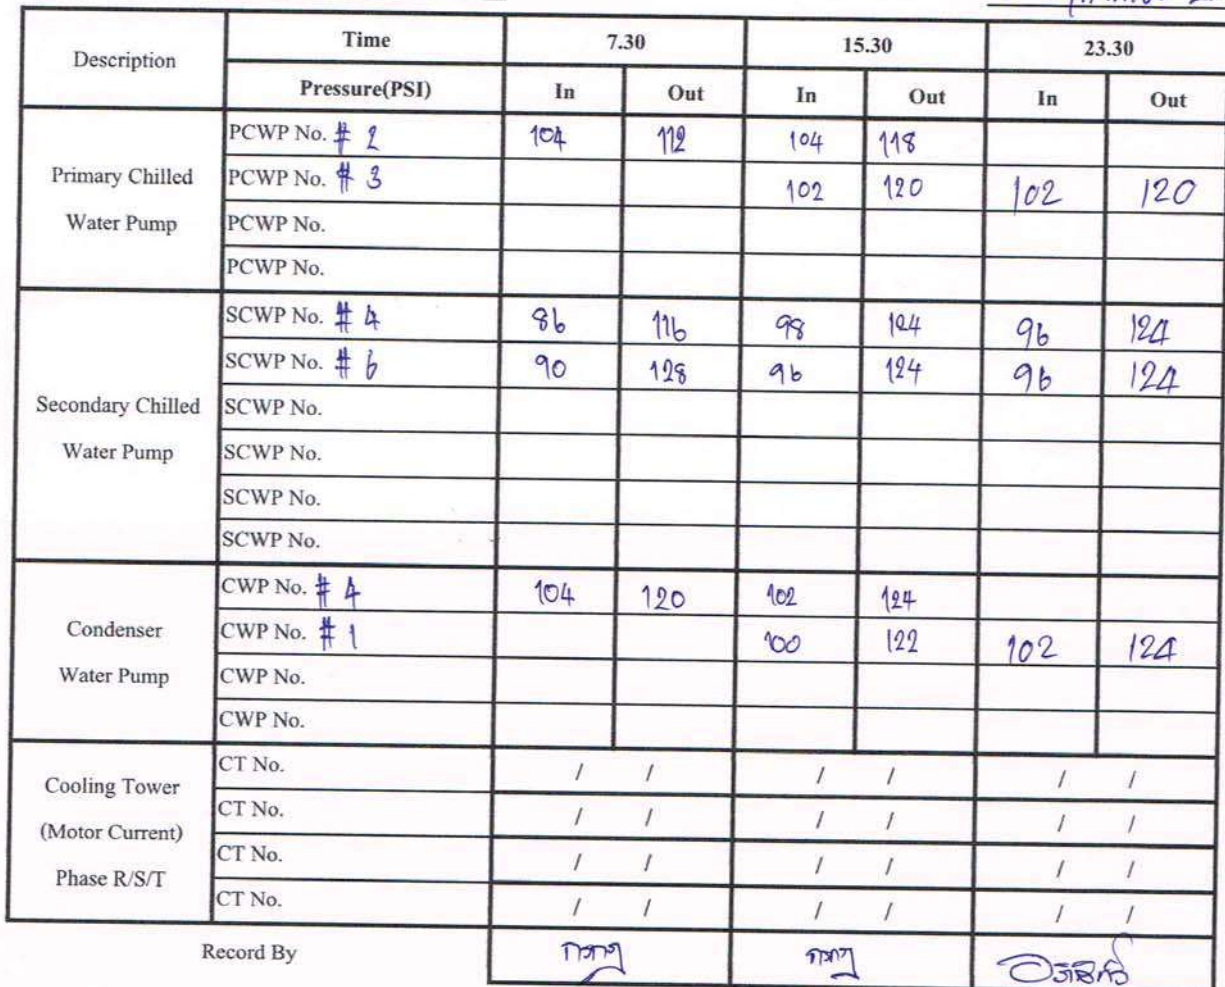 Description Time 7.30 15.30 23.30
Pressure(PSI) In Out In Out In Out
Primary Chilled Water Pump
PCWP No. # 2 104 112 104 118
PCWP No. # 3 102 120 102 120
PCWP No.
PCWP No.
Secondary Chilled Water Pump
SCWP No. # 4 86 116 98 124 96 124
SCWP No. # 6 90 128 96 124 96 124
SCWP No.
SCWP No.
SCWP No.
SCWP No.
Condenser Water Pump
CWP No. # 4 104 120 102 124
CWP No. # 1 100 122 102 124
CWP No.
CWP No.
Cooling Tower (Motor Current) Phase R/S/T
CT No. / / / / / /
CT No. / / / / / /
CT No. / / / / / /
CT No. / / / / / /
Record By